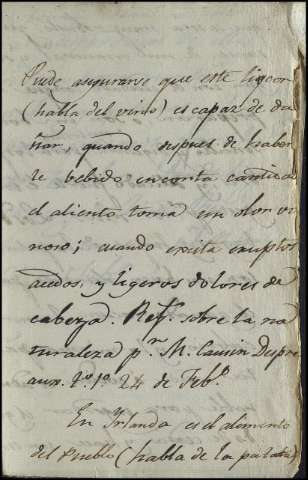 Puede asegurarse que este liquor
(habla del vino) es capaz de da-
ñar, quando despues de haber-
se bebido en corta cantidad
el aliento toma un olor vi-
noso; cuando excita eruptos
acedos, y ligeros dolores de
cabeza. Ref.s sobre la na-
turaleza p.r M. Cousin Despre-
aux. t.o 1.o 24 de Feb.o
En Irlanda es el alimento
del Pueblo (habla de la patata)